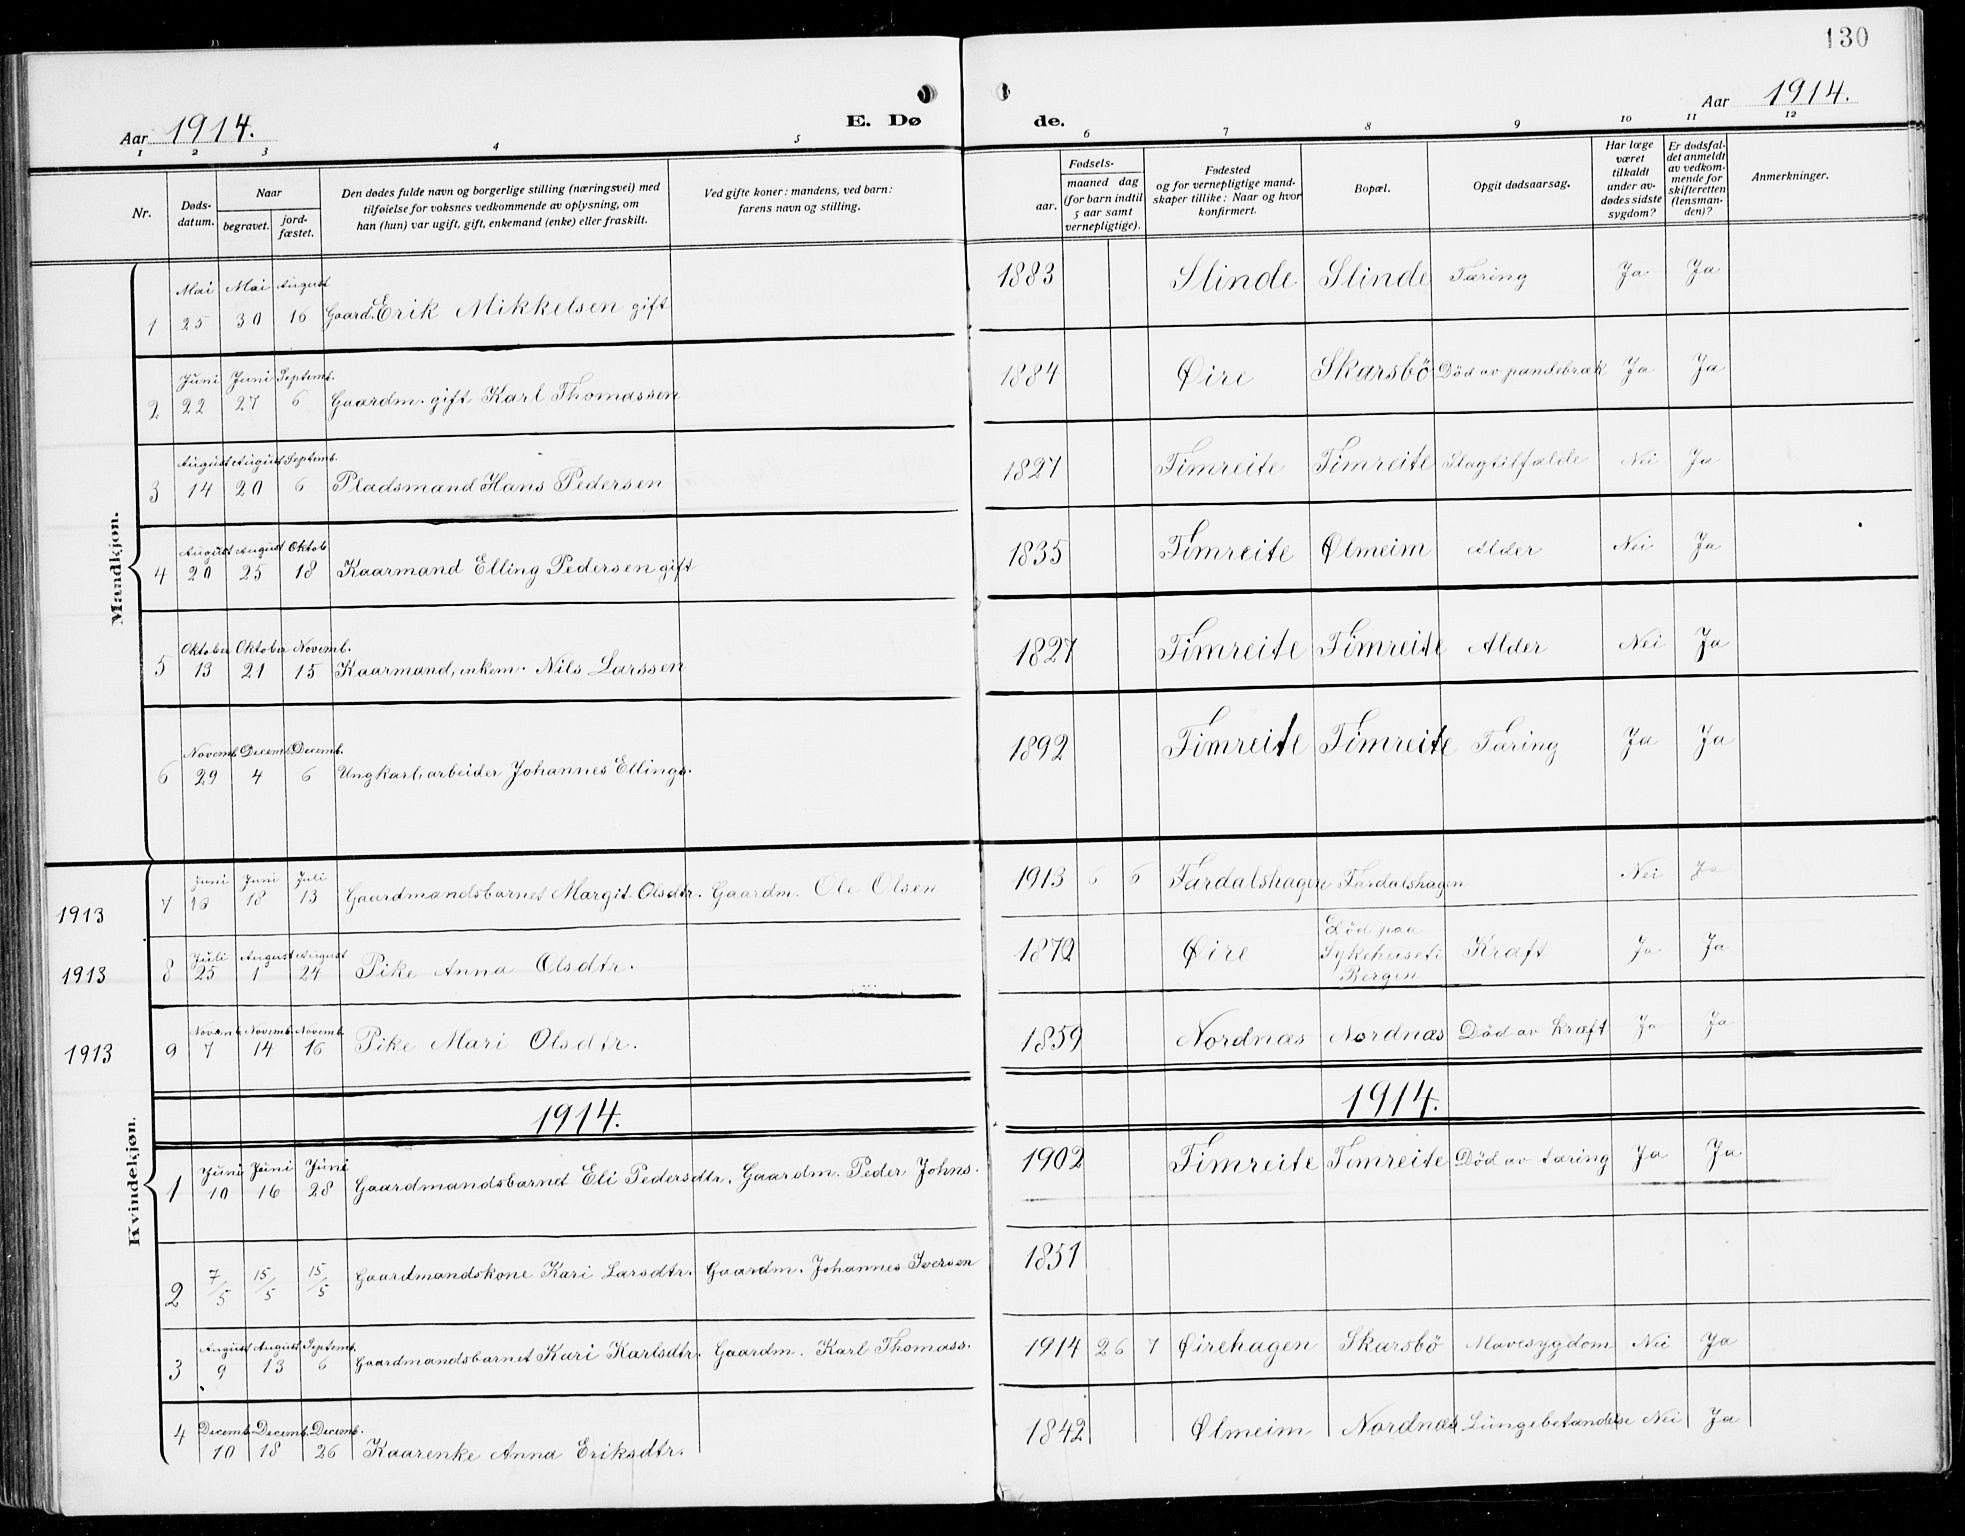 130
Aar 1914.
E. Dø
de.
Aar 1914.
1 2 3 4 5 6 7 8 9 10 11 12
Nr.
Døds-
datum.
Naar
begravet.
jord-
fæstet.
Den dødes fulde navn og borgerlige stilling (næringsvei) med
tilføielse for voksnes vedkommende av oplysning, om
han (hun) var ugift, gift, enkemand (enke) eller fraskilt.
Ved gifte koner: mandens, ved barn:
farens navn og stilling.
Fødsels-
aar.
maaned dag
(for barn indtil
5 aar samt
vernepligtige).
Fødested
og for vernepligtige mand-
skaper tillike: Naar og hvor
konfirmert.
Bopæl.
Opgit dødsaarsag.
Har læge
været
tilkaldt
under av-
dødes sidste
sygdom?
Er dødsfal-
det anmeldt
av vedkom-
mende for
skifteretten
(lensman-
den)?
Anmerkninger.
Mandkjøn.
Mai Mai August
1 25 30 16 Gaard. Erik Mikkelsen gift 1883 Slinde Slinde Tæring Ja Ja
Juni Juni Septemb.
2 22 27 6 Gaardm. gift Karl Thomassen 1884 Øire Skarsbö Död av pandebræk Ja Ja
August August Septemb.
3 14 20 6 Pladsmand Hans Pedersen 1827 Timreite Timreite Slagtilfælde Nei Ja
August August Oktob
4 20 25 18 Kaarmand Elling Pedersen gift 1835 Timreite Ølmeim Alder Nei Ja
Oktober Oktober Novemb.
5 13 21 15 Kaarmand, enkem. Nils Larssen 1827 Timreite Timreite Alder Nei Ja
Novemb. Decemb. Decemb.
6 29 4 6 Ungkarl, arbeider Johannes Ellings. 1892 Timreite Timreite Tæring Ja Ja
Juni Juni Juli
1913 7 16 18 13 Gaardmandsbarnet Margit Olsdtr. Gaardm. Ole Olsen 1913 6 6 Fardalshagen Fardalshagen Nei Ja
Juli August August
1913 8 25 1 24 Pike Anna Olsdtr. 1872 Øire Död paa
Sykehuset i
Bergen Kræft Ja Ja
Novemb. Novemb. Novemb.
1913 9 7 14 16 Pike Mari Olsdtr. 1859 Nordnæs Nordnæs Död av kræft Ja Ja
1914. 1914.
Kvindekjøn.
Juni Juni Juni
1 10 16 28 Gaardmandsbarnet Eli Pedersdtr. Gaardm. Peder Johns. 1902 Timreite Timreite Död av tæring Ja Ja
2 7/5 15/5 15/5 Gaardmandskone Kari Larsdtr. Gaardm. Johannes Iversen 1851
August August Septemb.
3 9 13 6 Gaardmandsbarnet Kari Karlsdtr. Gaardm. Karl Thomass. 1914 26 7 Øirehagen Skarsbö Mavesygdom Nei Ja
Decemb. Decemb. Decemb.
4 10 18 26 Kaarenke Anna Eriksdtr. 1842 Ølmeim Nordnæs Lungebetændelse Nei Ja